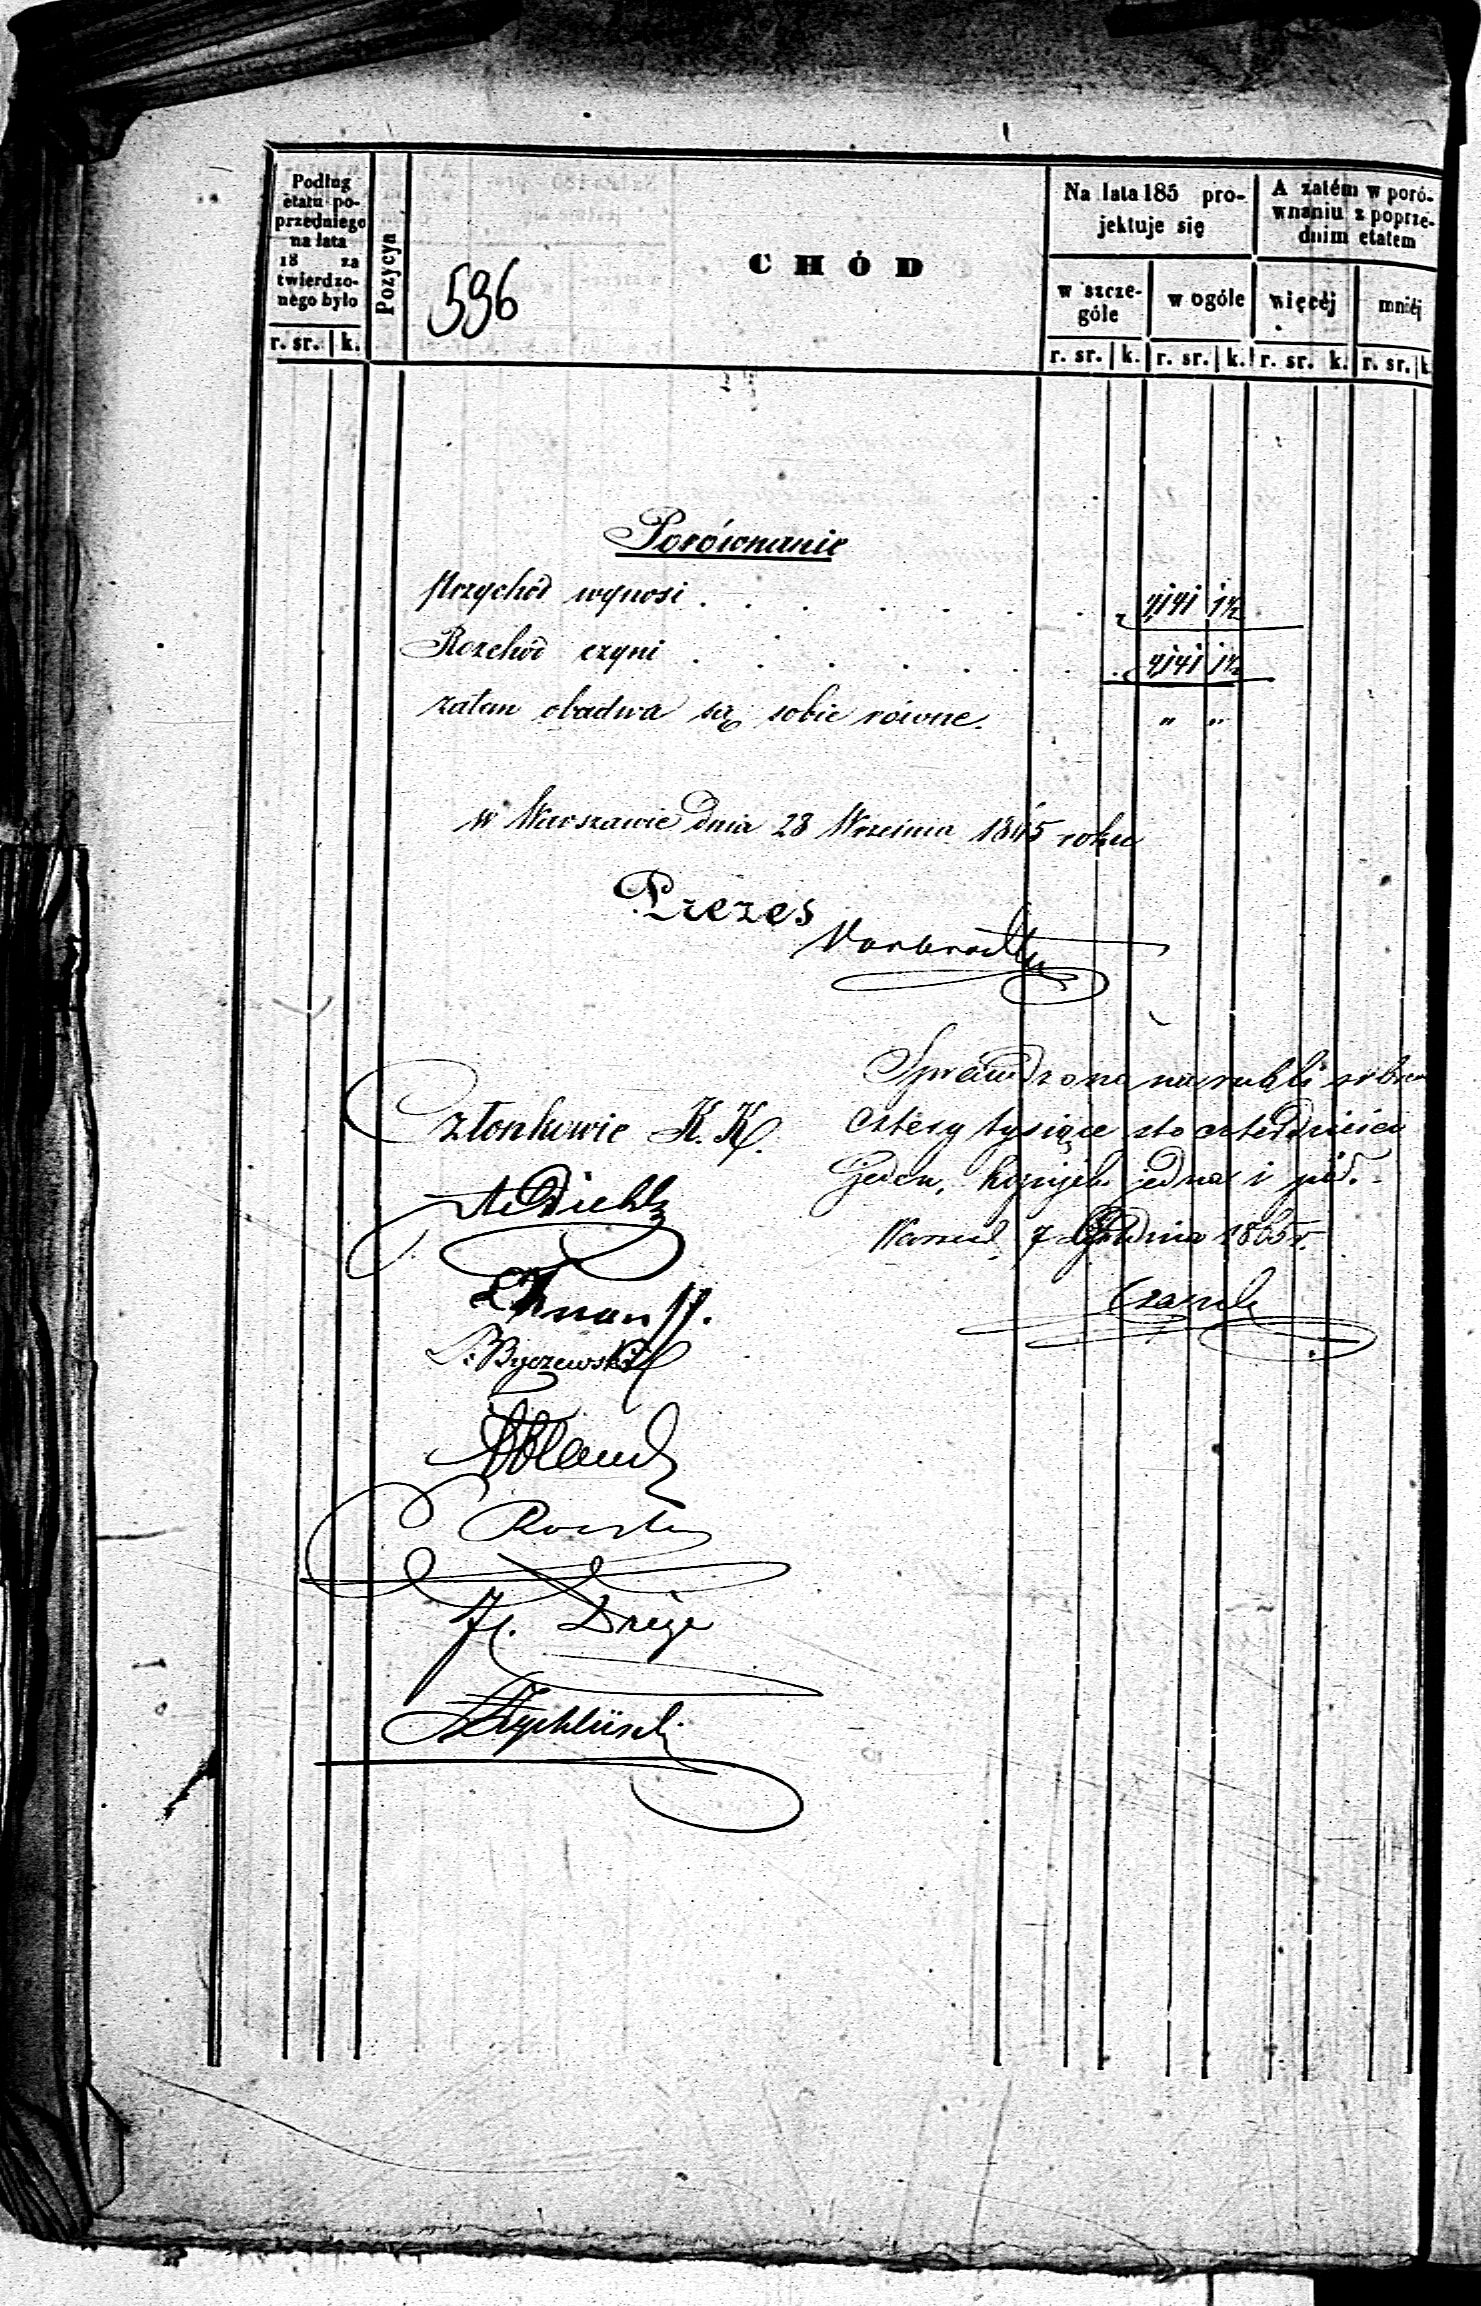 Podług
etatu po-
przedniego
na lata
18 za
twierdzo-
nego było
r. sr. k.
Pozycya
596
CHÓD
Na lata 185 pro-
jektuje się
w szcze-
góle
w ogóle
r. sr. k. r. sr. k.
A zatém w poró-
wnaniu z poprze-
dnim etatem
więcéj
mniéj
r. sr. k. r. sr. k.
Porównanie
Przychód wynosi . . . . . . . 4141 1½
Rozchód czyni . . . . . . . 4141 1½
zatem obadwa są sobie równe. " "
w Warszawie dnia 28 Września 1865 roku
Prezes
Vorbrodt
Członkowie K. K.
A Diehl
Knauff.
P. Byczewski
Roesler
Drège
Sprawdzono na rubli srebrem
cztery tysiące sto czterdzieści
jeden, kopijek jedna i pół.
Warsza. 7 Grudnia 1865 r.